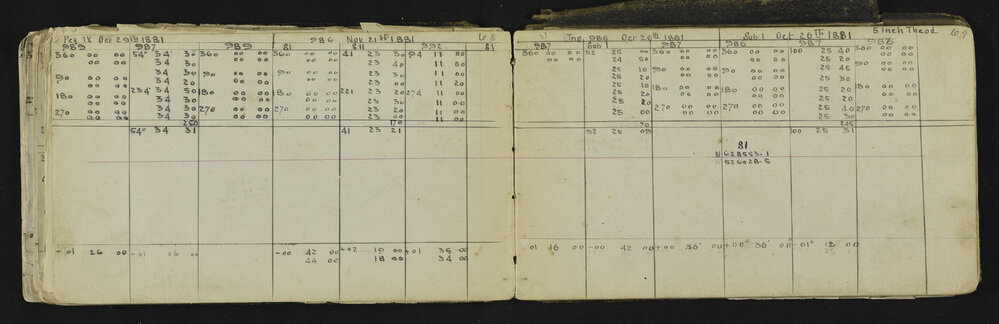 Peg IX Oct 29th 1881 986 Nov 21st 1881 68
989 987 989 81 S11 992 81
360 00 00 54° 34 30 360 00 00 360 00 00 41 23 30 94 11 00
00 00 34 30 00 00 00 00 23 30 11 00
00 00 34 30 00 00 00 00 23 30 11 00
90 00 00 34 20 90 00 00 90 00 00 23 20 11 20
180 00 00 234° 34 50 180 00 00 180 00 00 221 23 20 274 11 00
00 00 34 30 00 00 00 00 23 20 11 00
270 00 00 34 30 270 00 00 270 00 00 23 30 11 00
00 00 34 30 00 00 00 00 23 20 11 00
250 170
54° 34 31 41 23 21
-01 26 00 -01 06 00 -00 42 00 -02 19 00 -01 35 00
44 00 18 00 34 00
Inc 986 Oct 26th 1881 Sub 1 Oct 26th 1881 5 Inch Theod 69
987 Sub 1 987 986 987 986
360 00 00 52 25 00 360 00 00 360 00 00 100 25 40 360 00 00
00 00 24 50 00 00 00 00 25 20 00 00
25 10 90 00 00 90 00 00 25 45 00 00
25 10 00 00 00 00 25 30 00 00
25 20 180 00 00 180 00 00 25 20 00 00
25 20 00 00 00 00 25 20 00 00
25 20 270 00 00 270 00 00 25 40 00 00
25 00 00 00 00 00 25 30 00 00
70 245
52 25 09 100 25 31
81
N 628553.1
W 526028.5
01 16 00 -00 42 00 +00 36' 00 +00° 36' 00 -01° 12 00